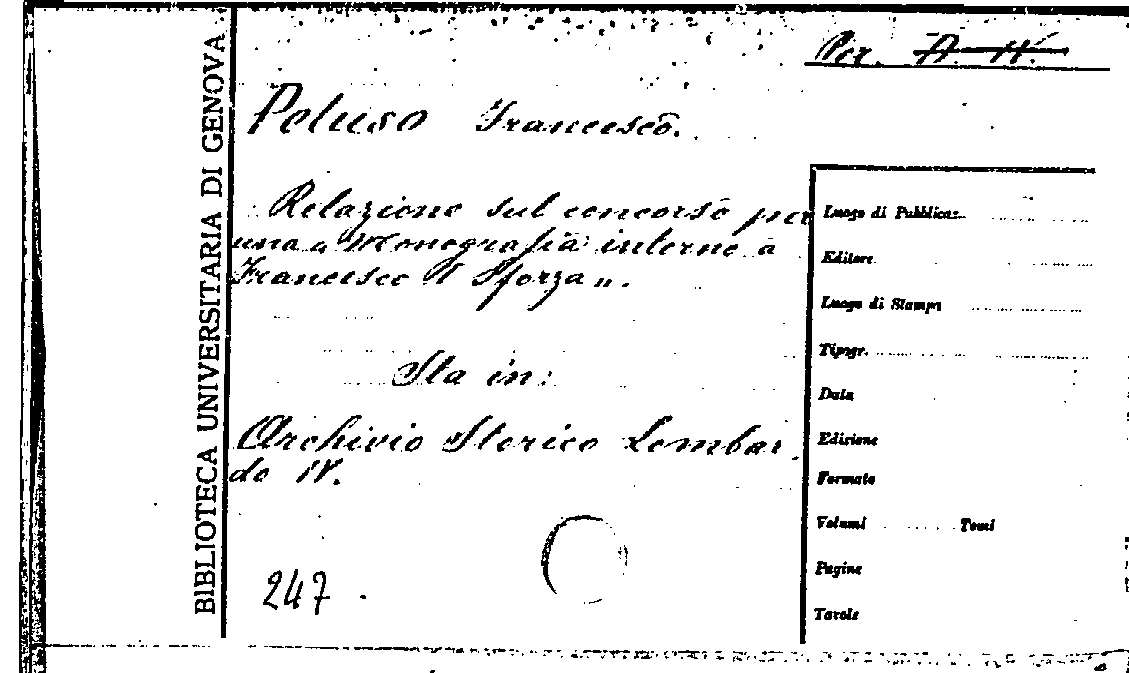 Per. A. H.
BIBLIOTECA UNIVERSITARIA DI GENOVA
Peluso Francesco.
Relazione sul concorso per
una „ Monografia interno a
Francesco I Sforza „.
Sta in:
Archivio Storico Lombar
do IV.
247.
Luogo di Pubblicaz.
Editore
Luogo di Stampa
Tipogr.
Data
Edizione
Formato
Volumi Tomi
Pagine
Tavole